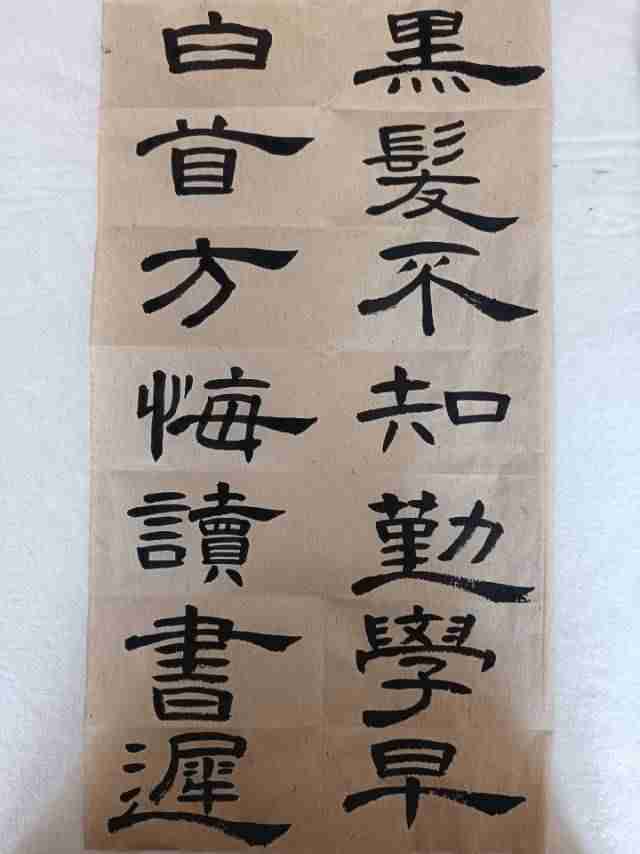 黑髮不知勤學早
白首方悔讀書遲